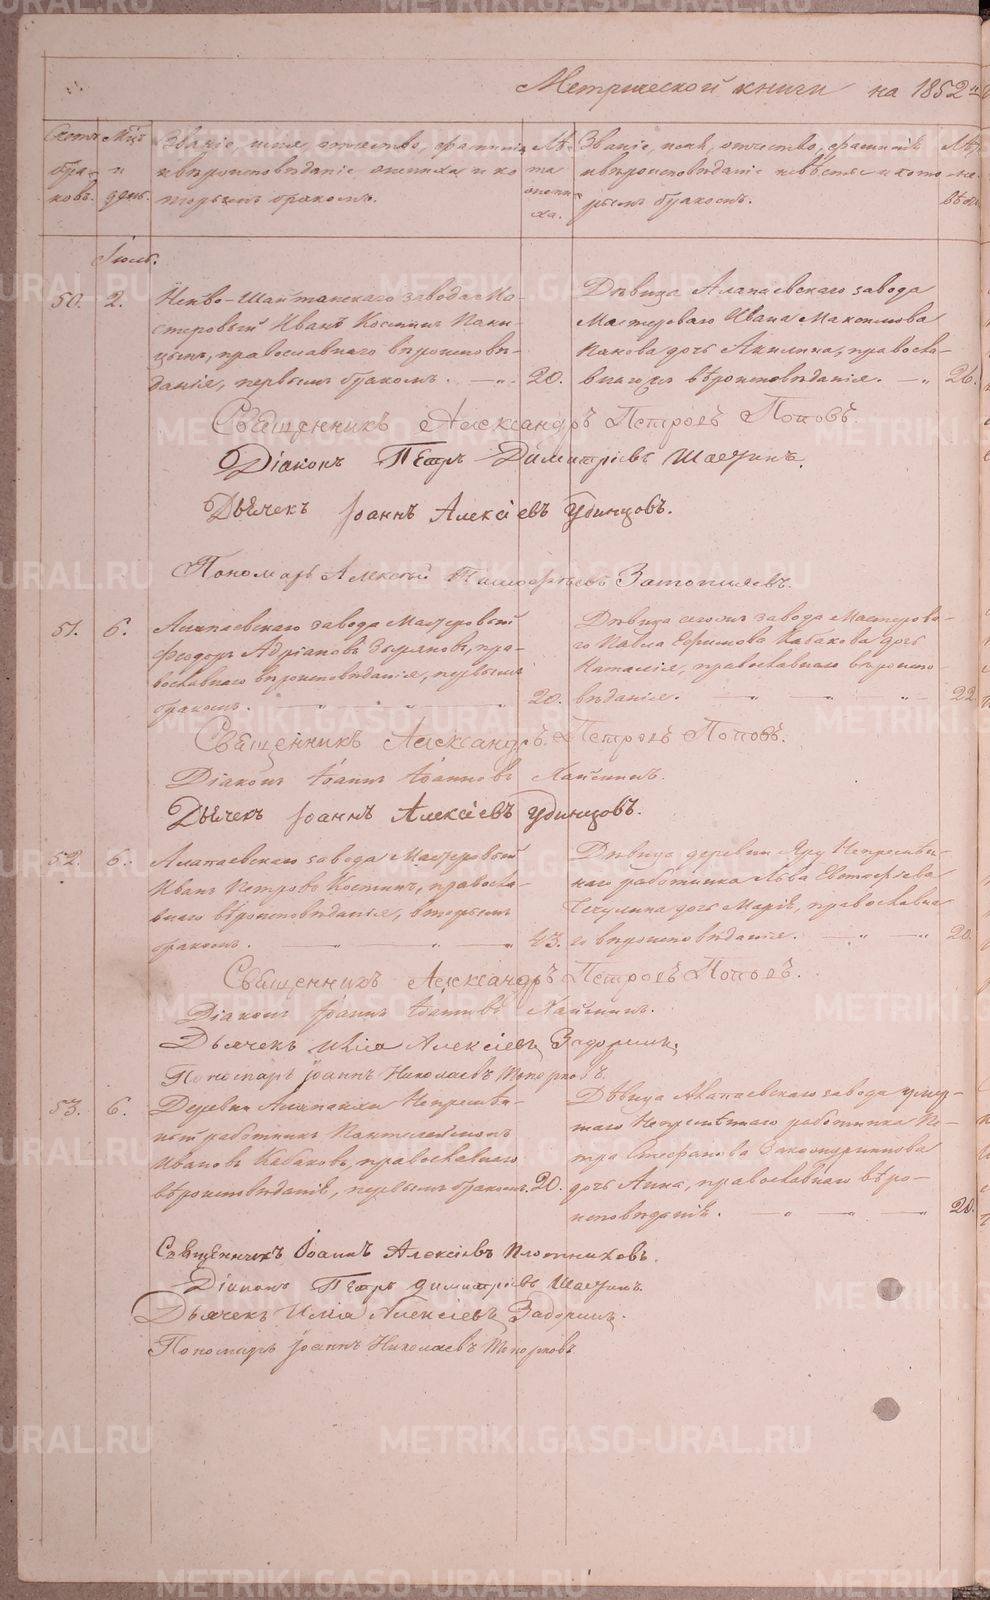 Метрической книги на 1852й
Счетъ бра- ковъ.
Мцъ и день.
Званіе, имя, отчество, фамилія и вѣроисповѣданіе жениха и которымъ бракомъ.
Лѣта жениха.
Званіе, имя, отчество, фамилія и вѣроисповѣданіе невѣсты и которымъ бракомъ.
Лѣта
Іюль.
50. 2. Нейво-Шайтанскаго завода Ма-
стеровый Иванъ Костинъ
православнаго вѣроисповѣ-
данія, первымъ бракомъ. 20.
Дѣвица Алапаевскаго завода
Мастероваго Ивана Максимова
дочь Акилина, правосла-
внаго вѣроисповѣданія. 26.
Священникъ Александръ Петровъ Поповъ.
Діаконъ Петръ Димитріевъ
Дьячекъ Іоаннъ Алексіевъ Удинцовъ.
Пономарь Алексѣй Тимофѣевъ
51. 6. Алапаевскаго завода Мастеровый
Феодоръ Адріановъ Зыряновъ, пра-
вославнаго вѣроисповѣданія, первымъ
бракомъ. 20.
Дѣвица сегожъ завода Мастерова-
го Павла Ефимова Кабакова дочь
Наталія, православнаго вѣроиспо-
вѣданія. 22
Священникъ Александръ Петровъ Поповъ.
Діаконъ Іоаннъ Іоанновъ
Дьячекъ Іоаннъ Алексіевъ Удинцовъ.
52. 6. Алапаевскаго завода Мастеровый
Иванъ Петровъ Костинъ, правосла-
внаго вѣроисповѣданія, вторымъ
бракомъ. 43.
Дѣвица деревни Яру Непремѣн-
наго работника Льва
дочь Марія, православна
го вѣроисповѣданія. 20.
Священникъ Александръ Петровъ Поповъ.
Діаконъ Іоаннъ Іоанновъ
Дьячекъ Илія Алексіевъ Задоринъ.
Пономарь Іоаннъ Николаевъ Топорковъ.
53. 6. Деревни Алапаихи Непремѣн-
ный работникъ Пантелеймонъ
Ивановъ Кабаковъ, православнаго
вѣроисповѣданія, первымъ бракомъ. 20.
Дѣвица Алапаевскаго завода умер-
шаго Непремѣннаго работника Пе-
тра Стефанова
дочь Анна, православнаго вѣро-
исповѣданія. 20.
Священникъ Іоаннъ Алексіевъ Плотниковъ.
Діаконъ Петръ Димитріевъ
Дьячекъ Илія Алексіевъ Задоринъ.
Пономарь Іоаннъ Николаевъ Топорковъ
METRIKI.GASO-URAL.RU